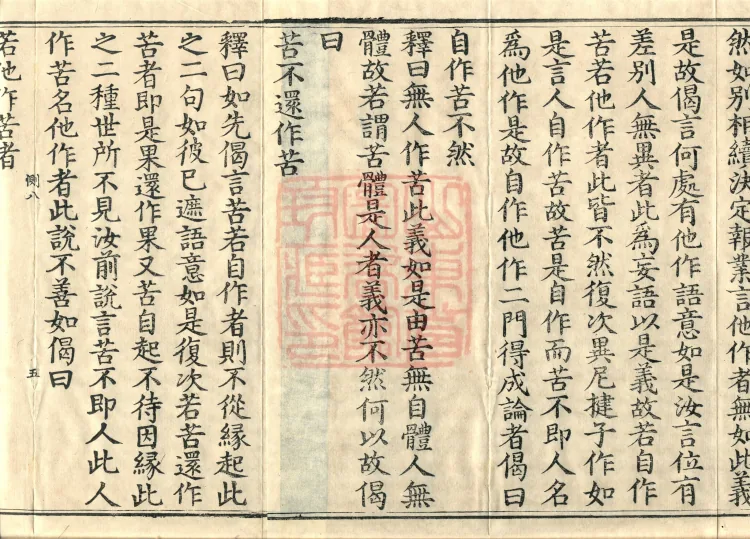 然如別相續決定報業言他作者無如此義
是故偈言何處有他作語意如是汝言位有
差別人無異者此為妄語以是義故若自作
苦若他作者此皆不然復次異尼揵子作如
是言人自作苦故苦是自作而苦不即人名
為他作是故自作他作二門得成論者偈曰
自作苦不然
釋曰無人作苦此義如是由苦無自體人無
體故若謂苦體是人者義亦不然何以故偈
曰
苦不還作苦
釋曰如先偈言苦若自作者則不從緣起此
之二句如彼已遮語意如是復次若苦還作
苦者即是果還作果又苦自起不待因緣此
之二種世所不見汝前說言苦不即人此人
作苦名他作者此說不善如偈曰
惻八
五
若他作苦者